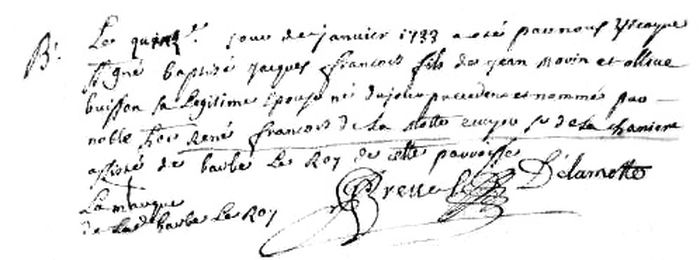 B.
Le jour de janvier 1733 a été par nous vicaire
signé baptisé Jacques françois fils de Jean Morin et ollive
buisson sa legitime Epouse né du jour precedent et nommé par
noble hoe René françois de la Motte ecuyer Sr de la
assisté de barbe Le Roy de cette parroisse
La marque
de Lad barbe Le Roy
Delamotte